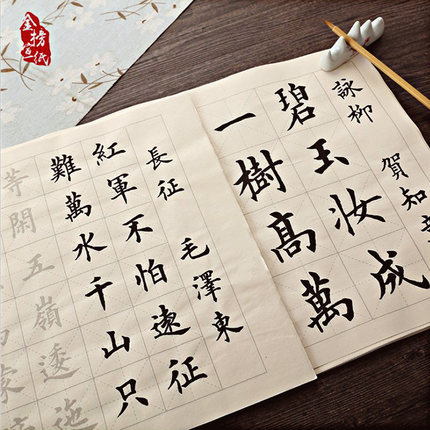 金榜宣紙
詠柳
賀知章
碧玉妝成
一樹高萬
長征
毛澤東
紅軍不怕遠征
難萬水千山只
等閑五嶺逶迤